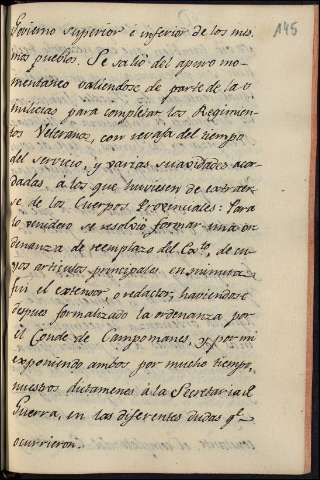 145
Govierno superior è inferior de los mis-
mos pueblos. Se salió del apuro mo-
mentaneo valiendose de parte de las
milicias para completar los Regimien-
tos Veteranos, con revaja del tiempo
del servicio, y varias suavidades acor-
dadas à los que huviesen de extraer-
se de los Cuerpos Provinciales: Para
lo venidero se resolvió formar una or-
denanza de reemplazo del Exto, de cu-
yos articulos principales en minuta
fui el extensor, o redactor, haviendose
despues formalizado la ordenanza por
el Conde de Campomanes, y por mi
exponiendo ambos por mucho tiempo,
nuestros dictamenes à la Secretaria de
Guerra, en las diferentes dudas qe
ocurrieron.